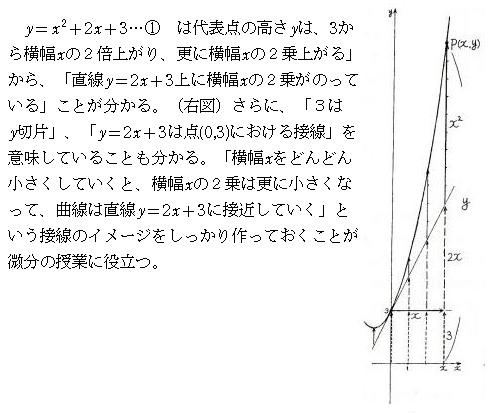 y=x²+2x+3…① は代表点の高さyは、3か
ら横幅xの２倍上がり、更に横幅xの２乗上がる」
から、「直線y=2x+3上に横幅xの２乗がのって
いる」ことが分かる。（右図）さらに、「３は
y切片」、「y=2x+3は点(0,3)における接線」を
意味していることも分かる。「横幅xをどんどん
小さくしていくと、横幅xの２乗は更に小さくな
って、曲線は直線y=2x+3に接近していく」と
いう接線のイメージをしっかり作っておくことが
微分の授業に役立つ。
y
P(x,y)
x²
y
2x
3
x
3
x
x